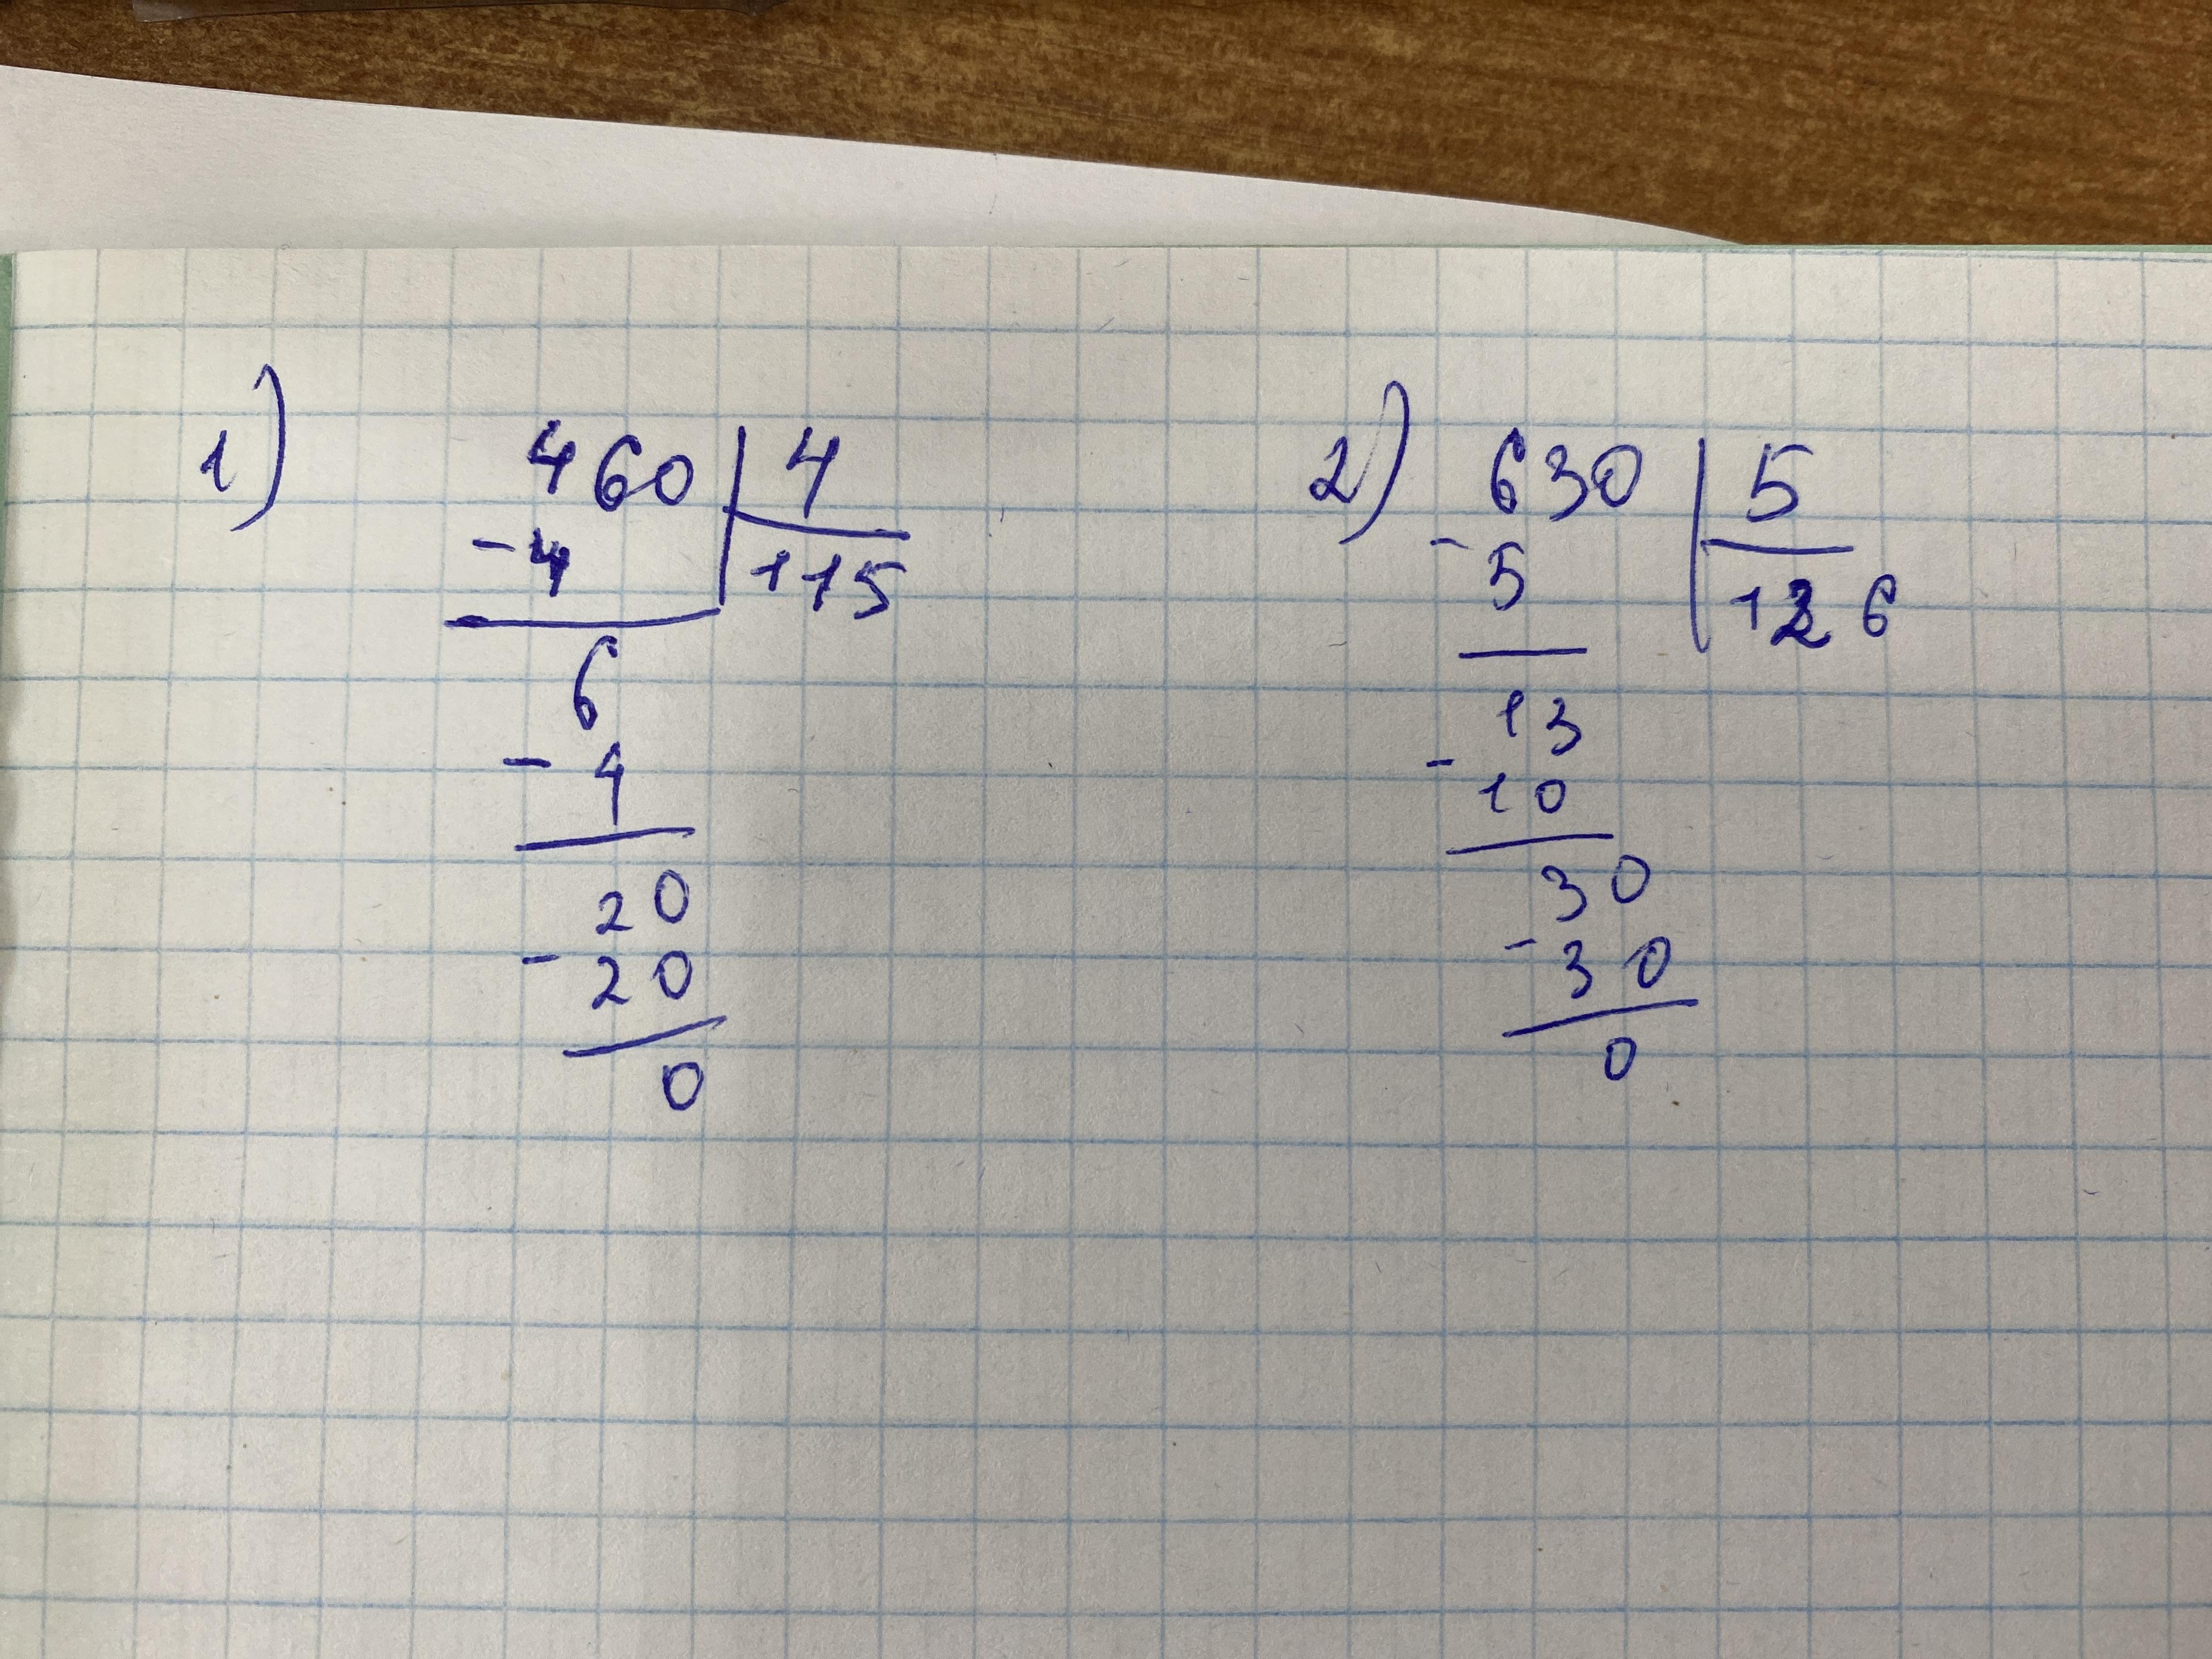 1) 460 | 4
- 4 | 115
6
- 4
20
- 20
0
2) 630 | 5
- 5 | 126
13
- 10
30
- 30
0